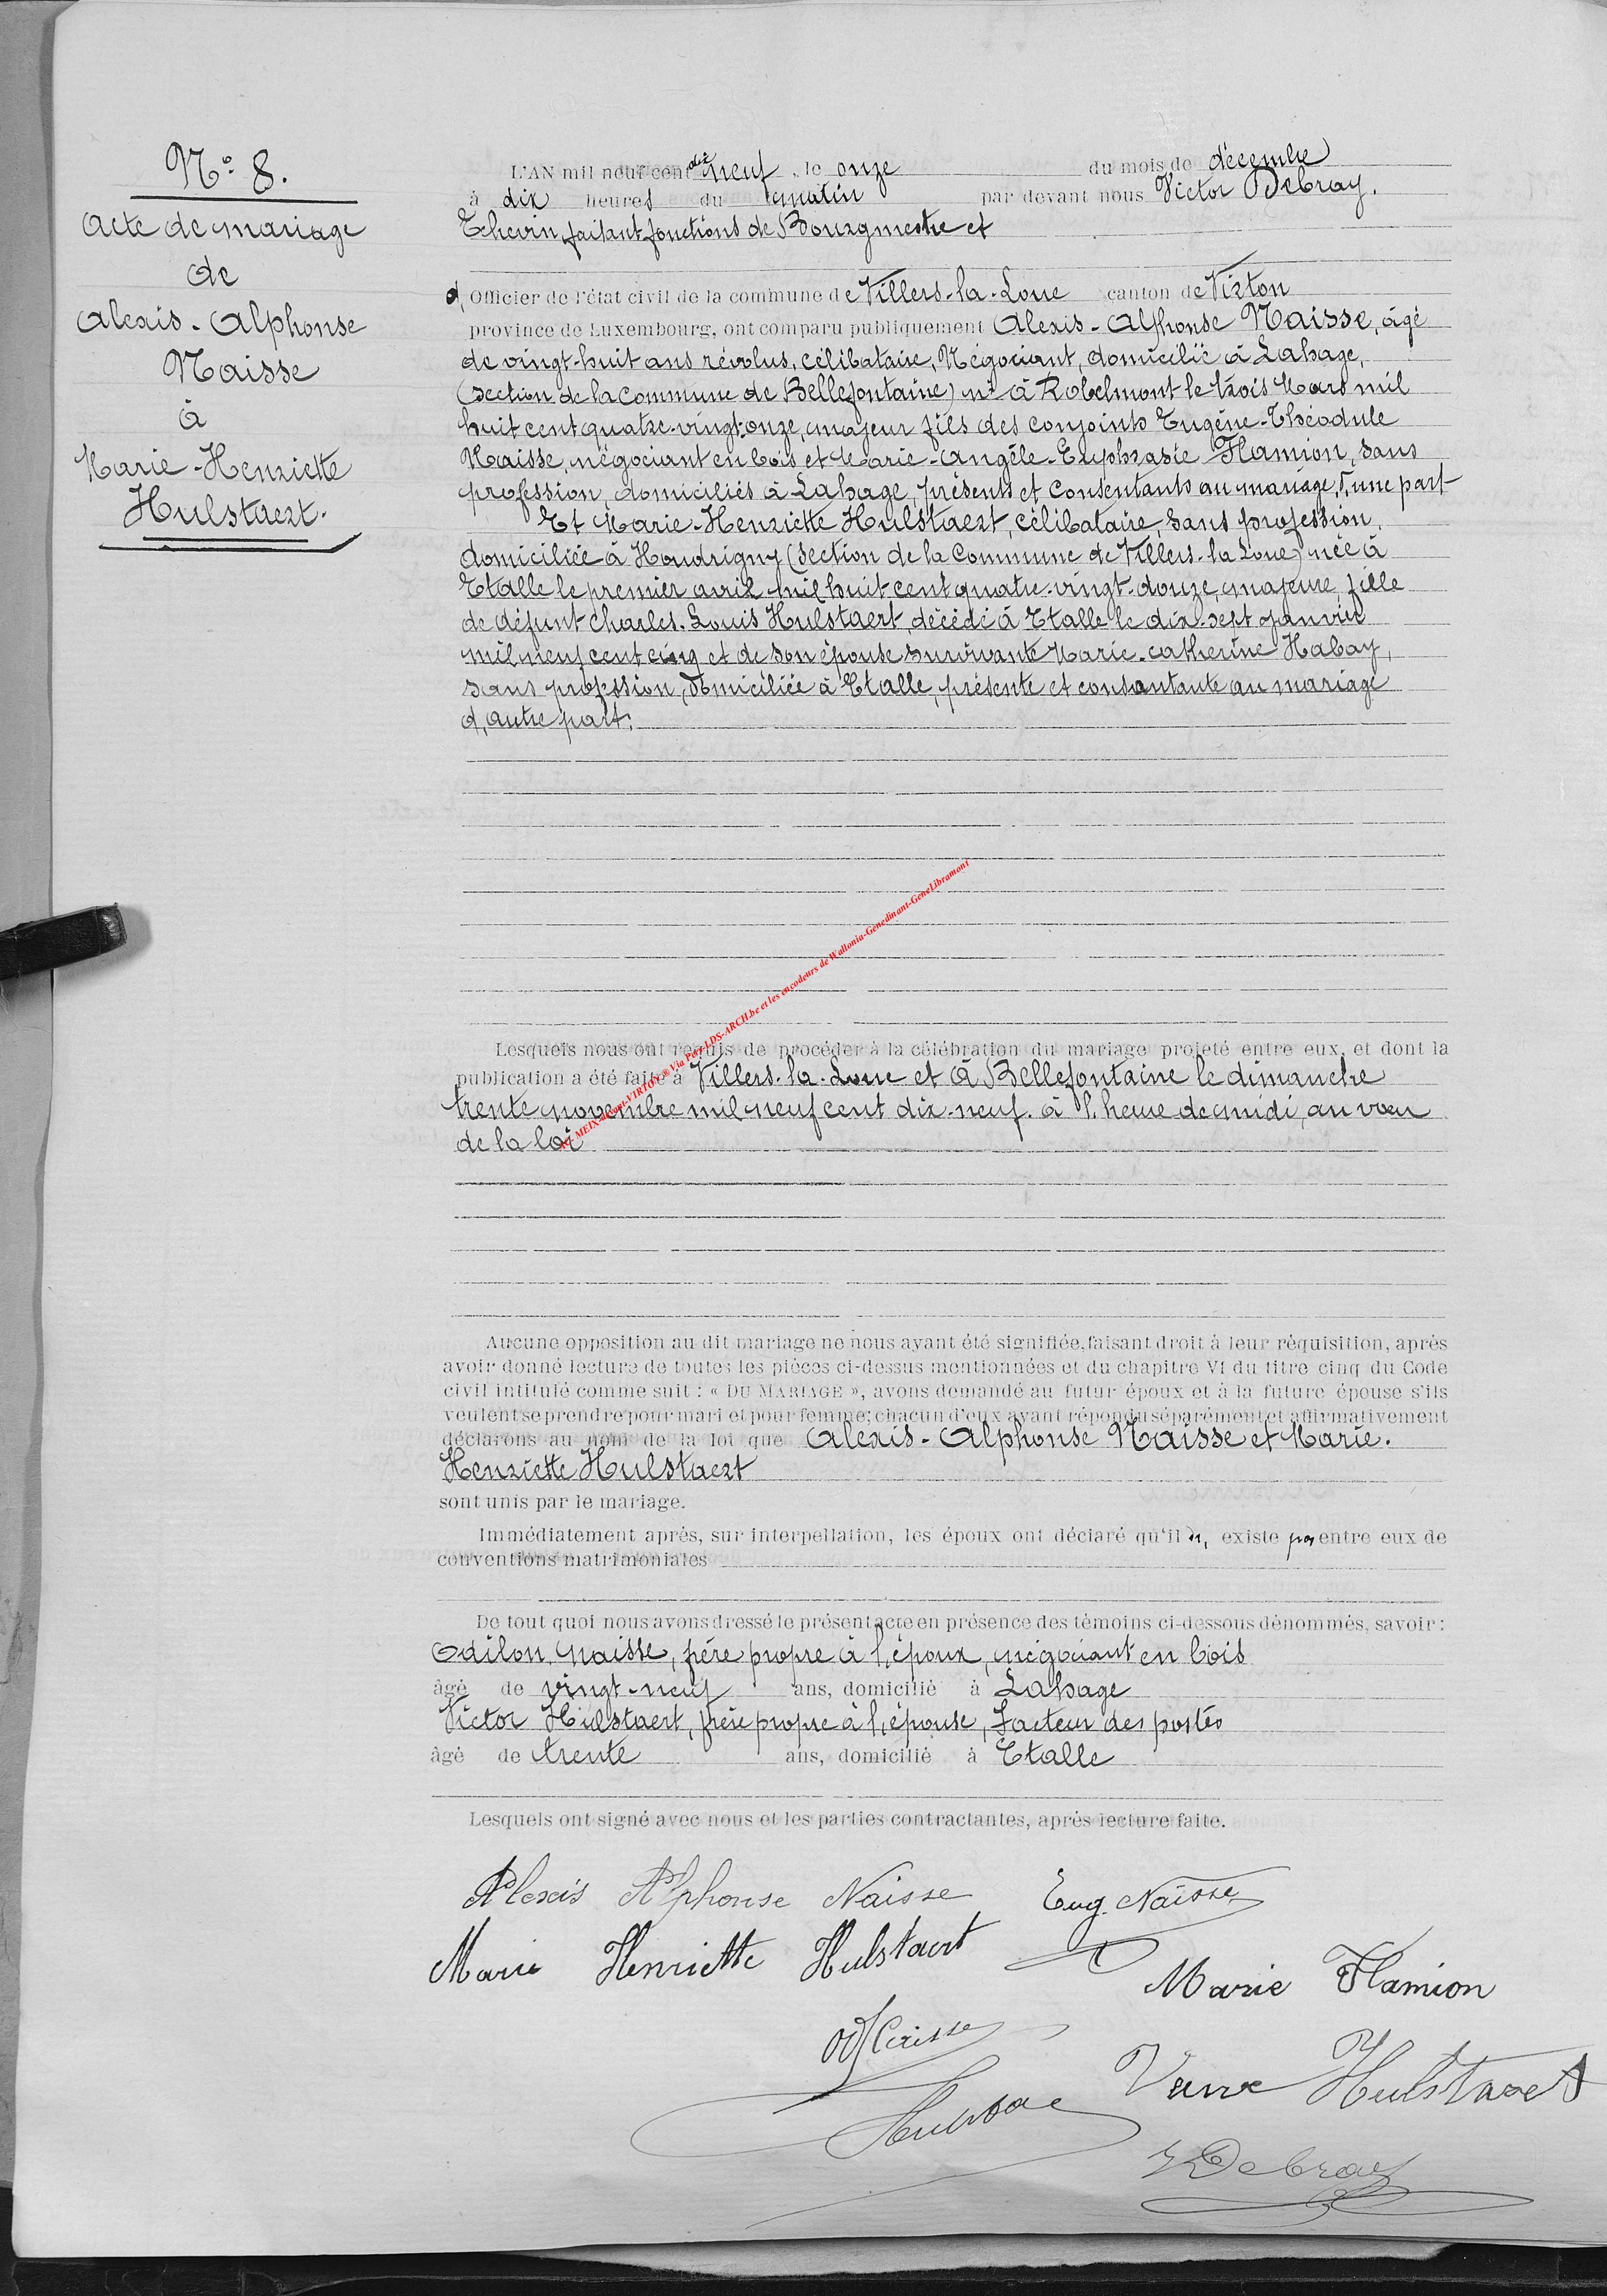 N° 8.
Acte de mariage
de
Alexis-Alphonse
Naisse
à
Marie-Henriette
Hulstaert.
L'AN mil neuf cent dix neuf, le onze du mois de décembre
à dix heures du matin par devant nous Victor Debray.
Echevin faisant fonctions de Bourgmestre et
d, Officier de l'état civil de la commune de Villers-la-Loue canton de Virton
province de Luxembourg, ont comparu publiquement Alexis-Alphonse Naisse, âgé
de vingt-huit ans révolus, célibataire, Négociant, domicilié à Lahage,
(section de la commune de Bellefontaine) né à Robelmont le trois Mars mil
huit cent quatre-vingt-onze, majeur fils des conjoints Eugène-Théodule
Naisse, négociant en bois et Marie-Angèle-Euphrasie Flamion, sans
profession, domiciliés à Lahage, présents et consentants au mariage, d,une part
Et Marie-Henriette Hulstaert, célibataire, sans profession,
domiciliée à Houdrigny (section de la Commune de Villers-la-Loue) née à
Etalle le premier avril mil huit cent quatre-vingt-douze, majeure, fille
de défunt Charles-Louis Hulstaert, décédé à Etalle le dix-sept Janvier
mil neuf cent cinq et de son épouse survivante Marie-Catherine Habay,
sans profession, domiciliée à Etalle, présente et consantante au mariage
d,autre part;
Lesquels nous ont requis de procéder à la célébration du mariage projeté entre eux, et dont la
publication a été faite à Villers-la-Loue et à Bellefontaine le dimanche
trente novembre mil neuf cent dix-neuf. à l'heure de midi, au vœu
de la loi
AC MEIX-devant-VIRTON ® Via Port-LDS-ARCH.be et les encodeurs de Wallonia-Genedinant-GeneLibramont
Aucune opposition au dit mariage ne nous ayant été signifiée, faisant droit à leur réquisition, après
avoir donné lecture de toutes les pièces ci-dessus mentionnées et du chapitre VI du titre cinq du Code
civil intitulé comme suit : « DU MARIAGE », avons demandé au futur époux et à la future épouse s'ils
veulent se prendre pour mari et pour femme; chacun d'eux ayant répondu séparément et affirmativement
déclarons au nom de la loi que Alexis-Alphonse Naisse et Marie-
Henriette Hulstaert
sont unis par le mariage.
Immédiatement après, sur interpellation, les époux ont déclaré qu'il n, existe pas entre eux de
conventions matrimoniales
De tout quoi nous avons dressé le présent acte en présence des témoins ci-dessous dénommés, savoir :
Odilon Naisse, frère propre à l,époux, négociant en bois
âgé de vingt-neuf ans, domicilié à Lahage
Victor Hulstaert, frère propre à l,épouse, facteur des postes
âgé de trente ans, domicilié à Etalle
Lesquels ont signé avec nous et les parties contractantes, après lecture faite.
Alexis Alphonse Naisse Eug. Naisse
Marie Henriette Hulstaert
Marie Flamion
Veuve Hulstaert
V Debray